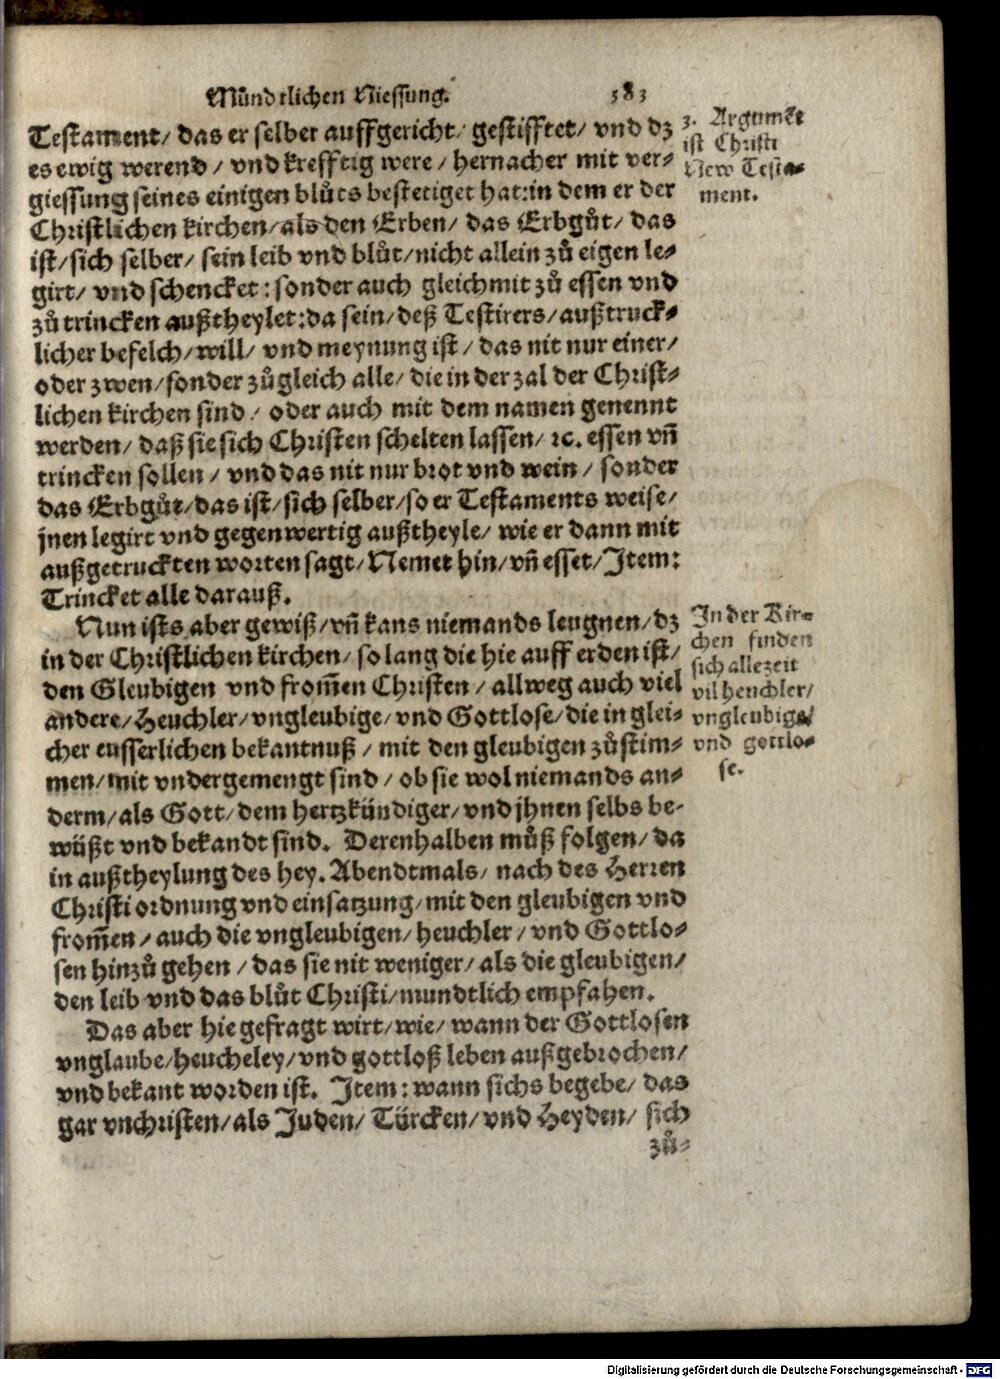 Můndtlichen Niessung. 583
Testament/ das er selber auffgericht/ gestifftet/ vnd dz
es ewig werend/ vnd krefftig were/ hernacher mit ver-
giessung seines einigen blůts bestetiget hat: in dem er der
Christlichen kirchen/ als den Erben/ das Erbgůt/ das
ist/ sich selber/ sein leib vnd blůt/ nicht allein zů eigen le-
girt/ vnd schencket: sonder auch gleich mit zů essen vnd
zů trincken außtheylet: da sein/ deß Testirers/ außtruck-
licher befelch/ will/ vnd meynung ist/ das nit nur einer/
oder zwen/ sonder zůgleich alle/ die in der zal der Christ-
lichen kirchen sind/ oder auch mit dem namen genennt
werden/ daß sie sich Christen schelten lassen/ ꝛc. essen vñ
trincken sollen/ vnd das nit nur brot vnd wein/ sonder
das Erbgůt/ das ist/ sich selber/ so er Testaments weise/
jnen legirt vnd gegenwertig außtheyle/ wie er dann mit
außgetruckten worten sagt/ Nemet hin/ vñ esset/ Item:
Trincket alle darauß.
3. Argumēt
ist Christi
New Testa-
ment.
Nun ists aber gewiß/ vñ kans niemands leugnen/ dz
in der Christlichen kirchen/ so lang die hie auff erden ist/
den Gleubigen vnd from̃en Christen/ allweg auch viel
andere/ Heuchler/ vngleubige/ vnd Gottlose/ die in glei-
cher eusserlichen bekantnuß/ mit den gleubigen zůstim-
men/ mit vndergemengt sind/ ob sie wol niemands an-
derm/ als Gott/ dem hertzkündiger/ vnd jhnen selbs be-
wüßt vnd bekandt sind. Derenhalben můß folgen/ da
in außtheylung des hey. Abendtmals/ nach des Herren
Christi ordnung vnd einsatzung/ mit den gleubigen vnd
from̃en/ auch die vngleubigen/ heuchler/ vnd Gottlo-
sen hinzů gehen/ das sie nit weniger/ als die gleubigen/
den leib vnd das blůt Christi/ mundtlich empfahen.
In der Kir-
chen finden
sich allezeit
vil heuchler/
vngleubige/
vnd gottlo-
se.
Das aber hie gefragt wirt/ wie/ wann der Gottlosen
vnglaube/ heucheley/ vnd gottloß leben außgebrochen/
vnd bekant worden ist. Item: wann sichs begebe/ das
gar vnchristen/ als Juden/ Türcken/ vnd Heyden/ sich
zů-
Digitalisierung gefördert durch die Deutsche Forschungsgemeinschaft - DFG